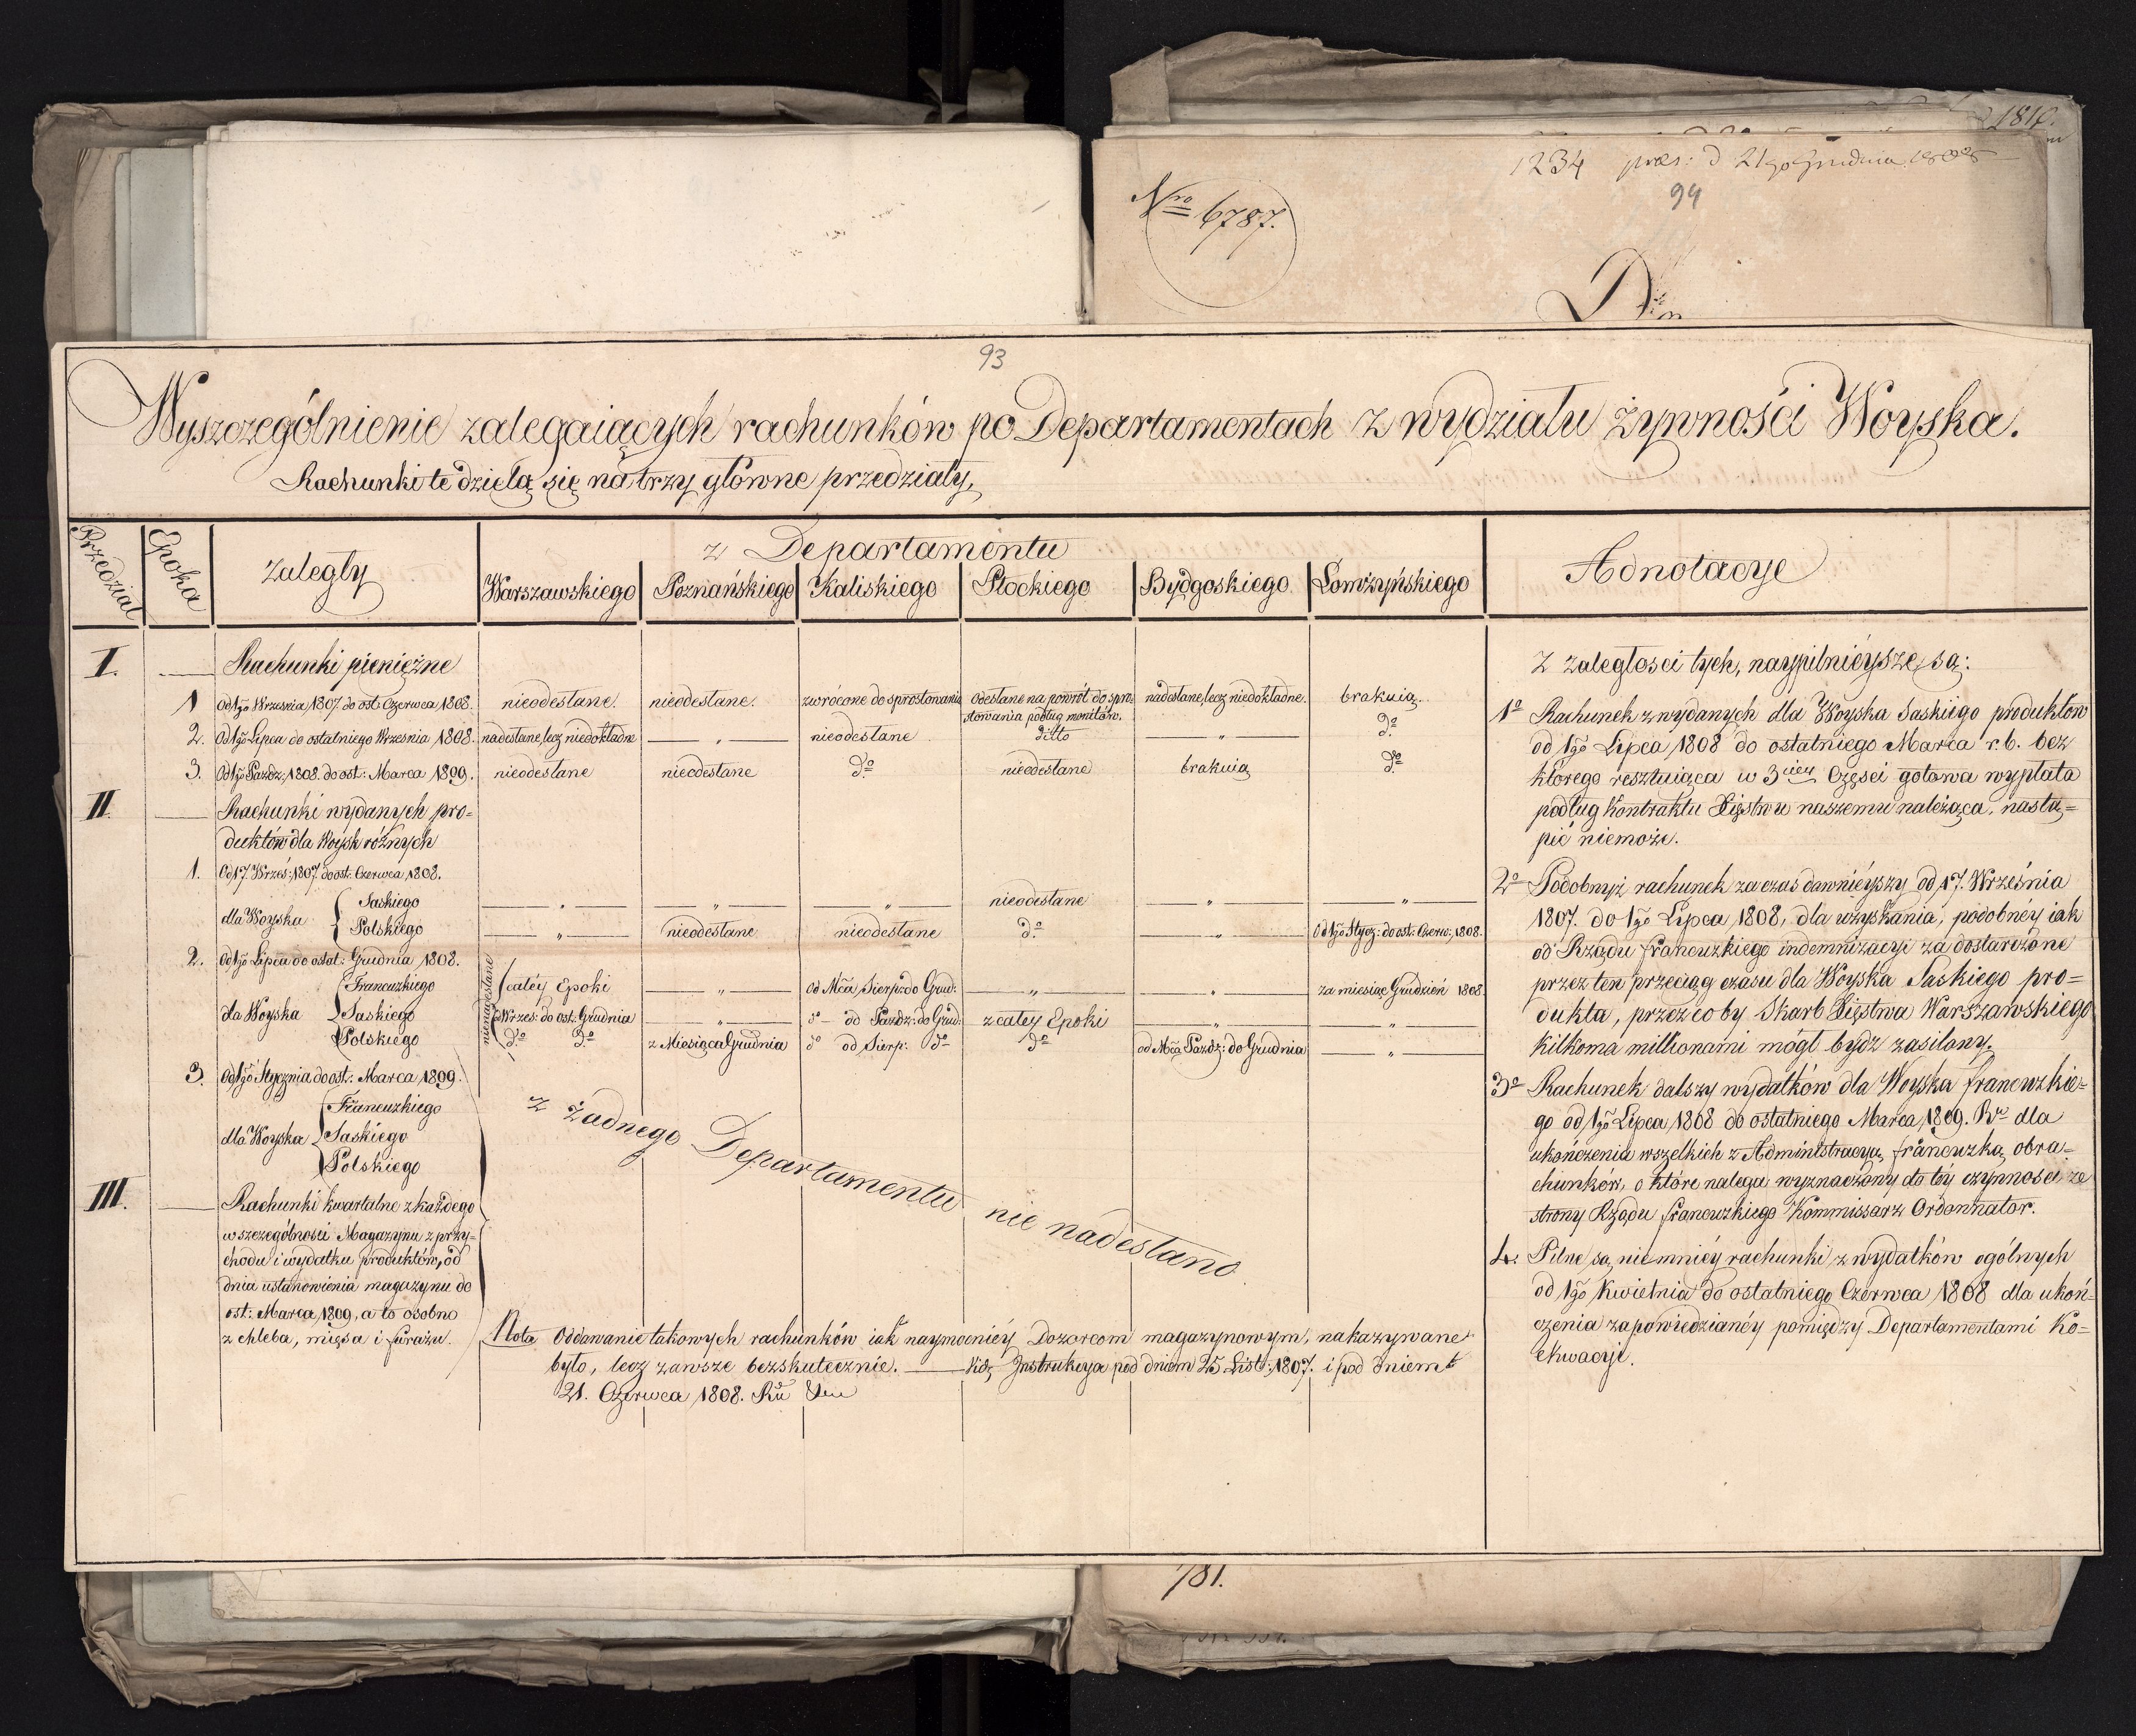 1817.
1234 præs: d 21go Grudnia 1808
94
Nro 6787.
93
Wyszczególnienie zalegaiących rachunków po Departamentach z wydziału żywności Woyska.
Rachunki te dzielą się na trzy główne przedziały,
Przedział Epoka Zaległy z Departamentu Adnotacye
Warszawskiego Poznańskiego Kaliskiego Płockiego Bydgoskiego Łomżyńskiego
I. Rachunki pieniężne
1 Od 1go Września 1807. do ost: Czerwca 1808. nieodesłane. nieodesłane. zwrócone do sprostowania Odesłane na powrót do spro- nadesłane, lecz niedokładne. brakuią.
stowania podług monitów.
2. Od 1go Lipca do ostatniego Września 1808. nadesłane, lecz niedokładne — „ — nieodesłane ditto — „ — do
3. Od 1go Paźdz: 1808. do ost: Marca 1809. nieodesłane nieodesłane do nieodesłane brakuią do
II. Rachunki wydanych pro=
duktów dla Woysk różnych
1. Od 17. Wrześ: 1807. do ost: Czerwca 1808.
dla Woyska { Saskiego — „ — — „ — — „ — nieodesłane — „ — — „ —
Polskiego — „ — nieodesłane nieodesłane do — „ — Od 1go Stycz: do ost: Czerw: 1808.
2. Od 1go Lipca do ostat: Grudnia 1808.
nienadesłane
dla Woyska { Francuzkiego całey Epoki — „ — Od Mca Sierp: do Grud: — „ — — „ — za miesiąc Grudzień 1808.
Saskiego Wrześ: do ost: Grudnia — „ — do — od Paźdz: do Grud: z całey Epoki — „ — — „ —
Polskiego do do z Miesiąca Grudnia do od Sierp: do do od Mca Paźdz: do Grudnia — „ —
3. Od 1go Stycznia do ost: Marca 1809.
dla Woyska { Francuzkiego
Saskiego
Polskiego
z żadnego Departamentu nie nadesłano.
III. Rachunki kwartalne z każdego
w szczególności Magazynu z przy=
chodu i wydatku produktów, od
dnia ustanowienia magazynu do
ost: Marca 1809, a to osobno
z chleba, mięsa i furażu.
Nota Oddawanie takowych rachunków iak naymocniéy Dozorcom magazynowym, nakazywane
było, lecz zawsze bezskutecznie. — Instrukcya pod dniem 25. List: 1807. i pod dniem
21. Czerwca 1808.
Z zaległości tych, naypilniéysze są:
1o Rachunek z wydanych dla Woyska Saskiego produktów
od 1go Lipca 1808 do ostatniego Marca r. b. bez
którego resztuiąca w 3ciey Części gotowa wypłata
podług Kontraktu Xięstwu naszemu należąca, nastą=
pić niemoże.
2o Podobnyż rachunek za czas dawniéyszy od 17. Września
1807. do 1go Lipca 1808, dla uzyskania, podobnéy iak
od Rządu francuzkiego indemnizacye za dostarczone
przez ten przeciąg czasu dla Woyska Saskiego pro=
dukta, przez co by Skarb Xięstwa Warszawskiego
kilkoma millionami mógł bydz zasilony.
3o Rachunek dalszy wydatków dla Woyska francuzkie=
go od 1go Lipca 1808 do ostatniego Marca 1809. dla
ukończenia wszelkich z Administracyą francuzką obra=
chunków, o które nalega wyznaczony do téy czynności ze
strony Rządu francuzkiego Kommissarz Ordonnator.
4. Pilne są niemniéy rachunki z wydatków ogólnych
od 1go Kwietnia do ostatniego Czerwca 1808 dla ukoń=
czenia zapowiedzianéy pomiędzy Departamentami Ko=
ekwacyi.
781.